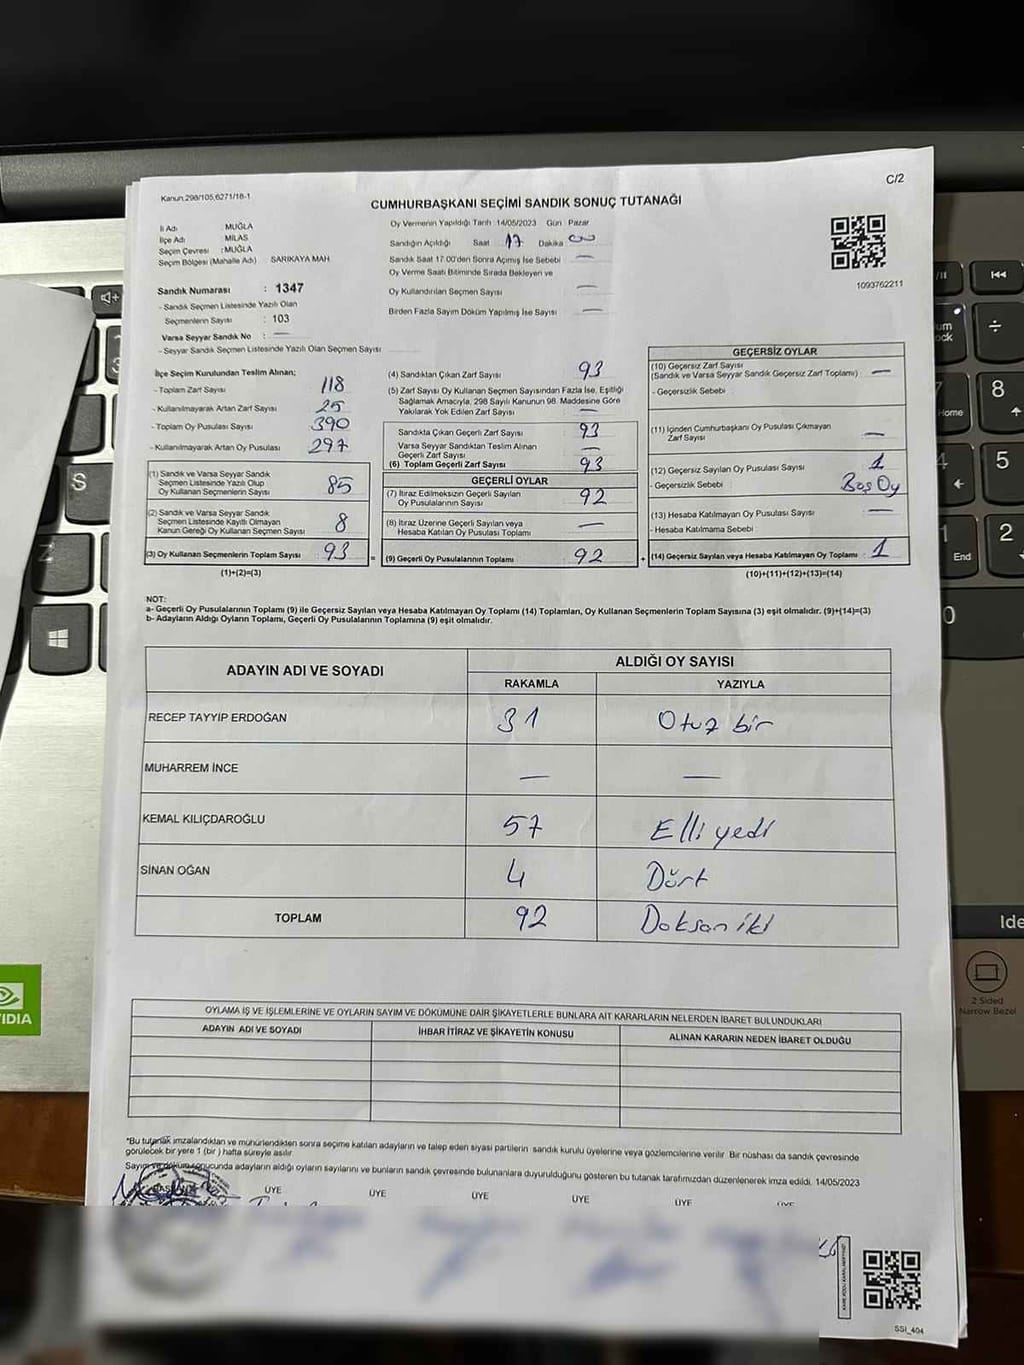 C/2
Kanun,298/105,6271/18-1
CUMHURBAŞKANI SEÇİMİ SANDIK SONUÇ TUTANAĞI
İl Adı : MUĞLA
İlçe Adı : MİLAS
Seçim Çevresi : MUĞLA
Seçim Bölgesi (Mahalle Adı) SARIKAYA MAH
Sandık Numarası : 1347
- Sandık Seçmen Listesinde Yazılı Olan
Seçmenlerin Sayısı : 103
Varsa Seyyar Sandık No : —
- Seyyar Sandık Seçmen Listesinde Yazılı Olan Seçmen Sayısı
Oy Vermenin Yapıldığı Tarih 14/05/2023 Gün Pazar
Sandığın Açıldığı Saat 17 Dakika 00
Sandık Saat 17.00'den Sonra Açımış İse Sebebi —
Oy Verme Saati Bitiminde Sırada Bekleyen ve
Oy Kullandırılan Seçmen Sayısı —
Birden Fazla Sayım Döküm Yapılmış İse Sayısı —
1093762211
İlçe Seçim Kurulundan Teslim Alınan;
- Toplam Zarf Sayısı 118
- Kullanılmayarak Artan Zarf Sayısı 25
- Toplam Oy Pusulası Sayısı 390
- Kullanılmayarak Artan Oy Pusulası 297
(1) Sandık ve Varsa Seyyar Sandık
Seçmen Listesinde Yazılı Olup
Oy Kullanan Seçmenlerin Sayısı 85
(2) Sandık ve Varsa Seyyar Sandık
Seçmen Listesinde Kayıtlı Olmayan
Kanun Gereği Oy Kullanan Seçmen Sayısı 8
(3) Oy Kullanan Seçmenlerin Toplam Sayısı 93
(1)+(2)=(3)
(4) Sandıktan Çıkan Zarf Sayısı 93
(5) Zarf Sayısı Oy Kullanan Seçmen Sayısından Fazla İse, Eşitliği
Sağlamak Amacıyla, 298 Sayılı Kanunun 98. Maddesine Göre
Yakılarak Yok Edilen Zarf Sayısı —
Sandıkta Çıkan Geçerli Zarf Sayısı 93
Varsa Seyyar Sandıktan Teslim Alınan
Geçerli Zarf Sayısı —
(6) Toplam Geçerli Zarf Sayısı 93
GEÇERLİ OYLAR
(7) İtiraz Edilmeksizin Geçerli Sayılan
Oy Pusulalarının Sayısı 92
(8) İtiraz Üzerine Geçerli Sayılan veya
Hesaba Katılan Oy Pusulası Toplamı —
= (9) Geçerli Oy Pusulalarının Toplamı 92
GEÇERSİZ OYLAR
(10) Geçersiz Zarf Sayısı
(Sandık ve Varsa Seyyar Sandık Geçersiz Zarf Toplamı) : —
- Geçersizlik Sebebi
(11) İçinden Cumhurbaşkanı Oy Pusulası Çıkmayan
Zarf Sayısı —
(12) Geçersiz Sayılan Oy Pusulası Sayısı 1
- Geçersizlik Sebebi : Boş Oy
(13) Hesaba Katılmayan Oy Pusulası Sayısı —
- Hesaba Katılmama Sebebi
+ (14) Geçersiz Sayılan veya Hesaba Katılmayan Oy Toplamı : 1
(10)+(11)+(12)+(13)=(14)
NOT:
a- Geçerli Oy Pusulalarının Toplamı (9) ile Geçersiz Sayılan veya Hesaba Katılmayan Oy Toplamı (14) Toplamları, Oy Kullanan Seçmenlerin Toplam Sayısına (3) eşit olmalıdır. (9)+(14)=(3)
b- Adayların Aldığı Oyların Toplamı, Geçerli Oy Pusulalarının Toplamına (9) eşit olmalıdır.
ADAYIN ADI VE SOYADI ALDIĞI OY SAYISI
RAKAMLA YAZIYLA
RECEP TAYYİP ERDOĞAN 31 Otuz bir
MUHARREM İNCE — —
KEMAL KILIÇDAROĞLU 57 Elli yedi
SİNAN OĞAN 4 Dört
TOPLAM 92 Doksan iki
OYLAMA İŞ VE İŞLEMLERİNE VE OYLARIN SAYIM VE DÖKÜMÜNE DAİR ŞİKAYETLERLE BUNLARA AİT KARARLARIN NELERDEN İBARET BULUNDUKLARI
ADAYIN ADI VE SOYADI İHBAR İTİRAZ VE ŞİKAYETİN KONUSU ALINAN KARARIN NEDEN İBARET OLDUĞU
*Bu tutanak imzalandıktan ve mühürlendikten sonra seçime katılan adayların ve talep eden siyasi partilerin sandık kurulu üyelerine veya gözlemcilerine verilir. Bir nüshası da sandık çevresinde
görülecek bir yere 1 (bir) hafta süreyle asılır.
Sayım ve döküm sonucunda adayların aldığı oyların sayılarını ve bunların sandık çevresinde bulunanlara duyurulduğunu gösteren bu tutanak tarafımızdan düzenlenerek imza edildi. 14/05/2023
BAŞKAN ÜYE ÜYE ÜYE ÜYE ÜYE ÜYE
SSI_404
S
Z
num
lock
Home
8
5
1
End
2
0
NVIDIA
Ide
2 Sided
Narrow Bezel